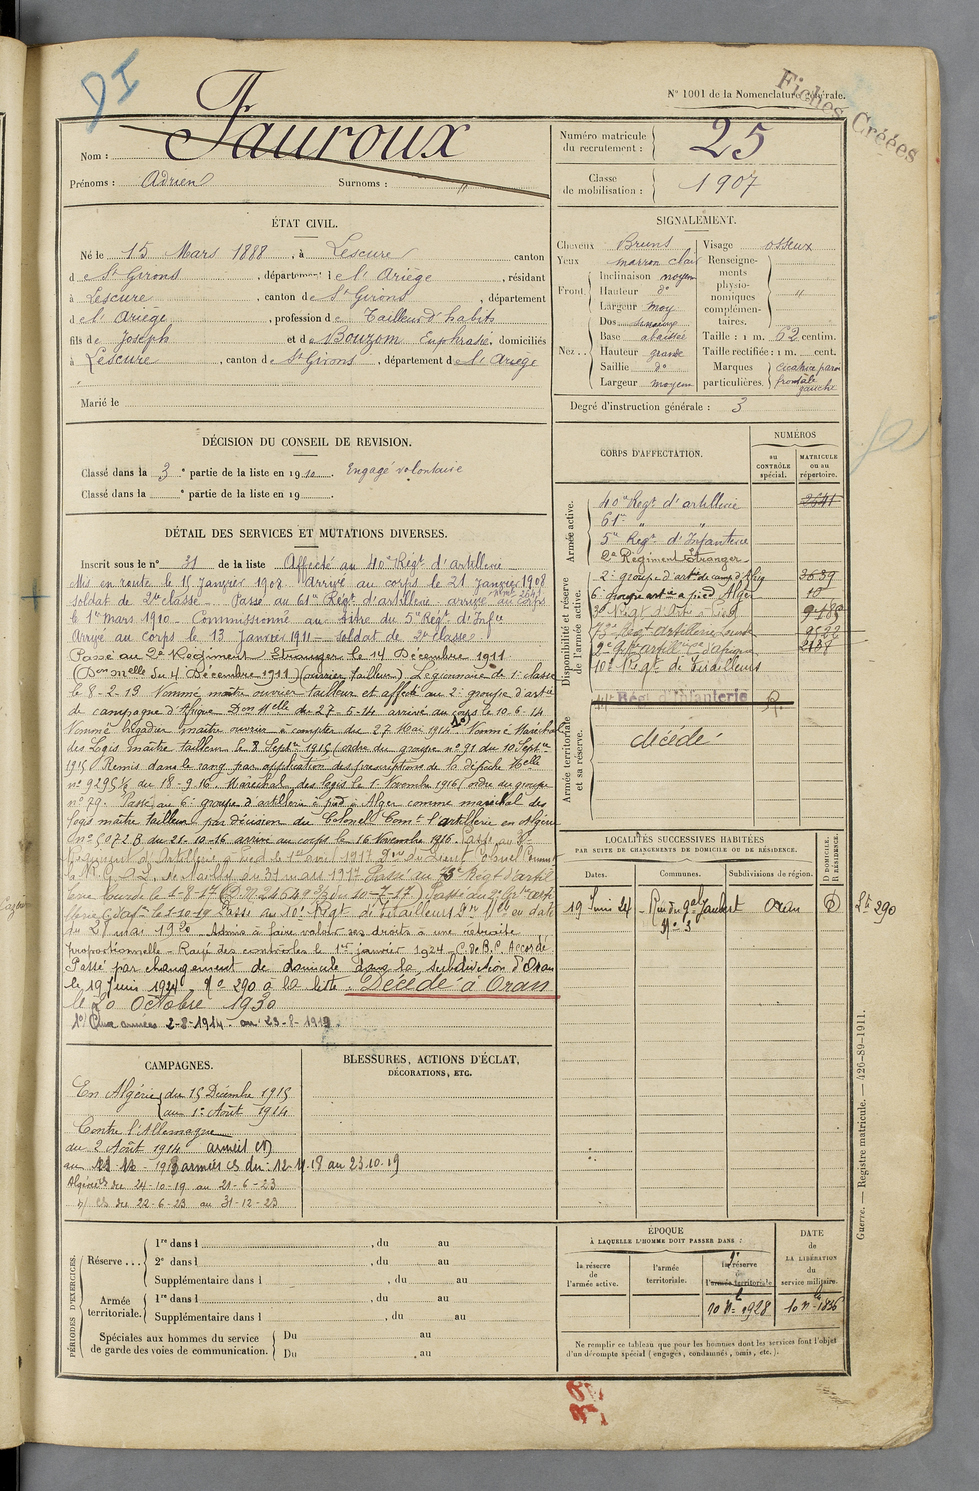 DI
N° 1001 de la Nomenclature générale.
Fiches Créées
Nom : Fauroux
Prénoms : Adrien Surnoms : "
Numéro matricule du recrutement : 25
Classe de mobilisation : 1907
ÉTAT CIVIL.
Né le 15 Mars 1888, à Lescure canton
de St Girons, département de l'Ariège, résidant
à Lescure, canton de St Girons, département
de l'Ariège, profession de Tailleur d'habits
fils de Joseph et de Bouzom Euphrasie, domiciliés
à Lescure, canton de St Girons, département de l'Ariège
Marié le
SIGNALEMENT.
Cheveux Bruns
Yeux marron clair
Front Inclinaison moyen
Hauteur d°
Largeur moy
Nez Dos
Base abaissée
Hauteur grande
Saillie d°
Largeur moyen
Visage osseux
Renseignements physionomiques complémentaires. "
Taille : 1 m. 62 centim.
Taille rectifiée : 1 m. cent.
Marques particulières. cicatrice
frontale
gauche
Degré d'instruction générale : 3
DÉCISION DU CONSEIL DE REVISION.
Classé dans la 3e partie de la liste en 1910. Engagé volontaire
Classé dans la e partie de la liste en 19 .
DÉTAIL DES SERVICES ET MUTATIONS DIVERSES.
Inscrit sous le n° 31 de la liste Affecté au 40e Régt d'artillerie
Mis en route le 15 Janvier 1908 arrivé au corps le 21 Janvier 1908
soldat de 2me classe Passé au 61me Régt d'artillerie arrivé au corps
le 1er mars 1910 - Commissionné au titre du 5e Régt d'Infie
Arrivé au corps le 13 Janvier 1911 - soldat de 2e classe
Passé au 2e Régiment Etranger le 14 Décembre 1911
(Don Melle du 4 Décembre 1911) (ouvrier tailleur) Légionnaire de 1e classe
le 8-2-13 Nommé maître ouvrier tailleur et affecté au 2e groupe d'artie
de campagne d'Afrique Don Melle du 27-5-14 arrivé au corps le 10-6-14
Nommé brigadier maître ouvrier à compter du 27 Mai 1914 (1°) Nommé Maréchal
des Logis maître tailleur le 8 Septbre 1915 (ordre du groupe n° 91 du 10 Septbre
1915) Remis dans le rang par application des prescriptions de la dépêche Melle
n° 9295 5/6 du 18-9-16. Maréchal des logis le 1er Novembre 1916 (ordre du groupe
n° 79. Passé au 6e groupe d'artillerie à pied à Alger comme maréchal des
logis maître tailleur par décision du Colonel Comt l'artillerie en Algérie
n° 5072 B du 21-10-16 arrivé au corps le 16 Novembre 1916. Passé au 3e
Régiment d'Artillerie à pied le 1er avril 1917 du Lieut Colonel Commt
du 31 mars 1917 Passé au 73e Régt d'artil
lerie lourde le 1-8-17
le 1-10-19 Passé au 10e Régt de Tirailleurs en date
du 28 mai 1920 - Admis à faire valoir ses droits à une retraite
proportionnelle - Rayé des contrôles le 1er janvier 1924 C. de B.C. Accordé
Passé par changement de domicile dans la subdivision d'Oran
le 19 Juin 1924 N° 290 de la liste. Décédé à Oran
le 20 Octobre 1930
1°) Aux armées 2-8-1914 au 23-8-1919
CORPS D'AFFECTATION.
NUMÉROS
au CONTRÔLE spécial.
MATRICULE ou au répertoire.
Armée active.
40e Régt d'artillerie 2641
61e " "
5e Régt d'Infanterie
2e Régiment Etranger
Disponibilité et réserve de l'armée active.
2e groupe d'artie de camp d'Afriq 3639
6e groupe artie à pied Alger 10
3e Régt d'Artie à Pied
73e Régt artillerie Lourde
2e Gpe artill Cne d'afrique 2108
10e Régt de Tirailleurs
Armée territoriale et sa réserve.
Régt d'Infanterie
décédé
LOCALITÉS SUCCESSIVES HABITÉES
PAR SUITE DE CHANGEMENTS DE DOMICILE OU DE RÉSIDENCE.
Dates. Communes. Subdivisions de région. D DOMICILE. R RÉSIDENCE.
19 Juin 24 Rue du Gal Joubert Oran D Lte 290
N° 3
CAMPAGNES.
En Algérie du 15 Décembre 1915
au 1er Août 1914
Contre l'Allemagne
du 2 Août 1914
au 1918 armées CS du : 12-11-18 au 23.10.19
Algérie CS du 24-10-19 au 21-6-23
d/ CS du 22-6-23 au 31-12-23
BLESSURES, ACTIONS D'ÉCLAT,
DÉCORATIONS, ETC.
PÉRIODES D'EXERCICES.
Réserve... 1re dans l , du au
2e dans l , du au
Supplémentaire dans l , du au
Armée territoriale. 1re dans l , du au
Supplémentaire dans l , du au
Spéciales aux hommes du service de garde des voies de communication. Du au
Du , au
ÉPOQUE
À LAQUELLE L'HOMME DOIT PASSER DANS :
la réserve de l'armée active.
l'armée territoriale.
2e la réserve de l'armée territoriale
10 9bre 1928
DATE de LA LIBÉRATION du service militaire.
10 9bre 1936
Ne remplir ce tableau que pour les hommes dont les services font l'objet
d'un décompte spécial (engagés, condamnés, omis, etc.).
Guerre. — Registre matricule. — 426-89-1911.